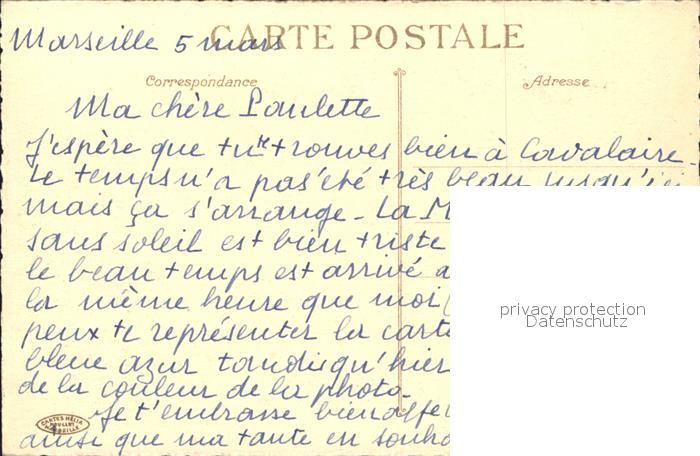 CARTE POSTALE
Marseille 5 mars
Correspondance
Adresse
Ma chère Paulette
J'espère que tu te trouves bien à Cavalaire.
Le temps n'a pas été très beau jusqu'ici
mais ça s'arrange - La M
sans soleil est bien triste
le beau temps est arrivé a
la même heure que moi (
peux te représenter la carte
bleue azur tandis qu'hier
de la couleur de la photo.
Je t'embrasse bien affe
ainsi que ma tante en souha
privacy protection
Datenschutz
CARTES HELIA
MARSEILLE